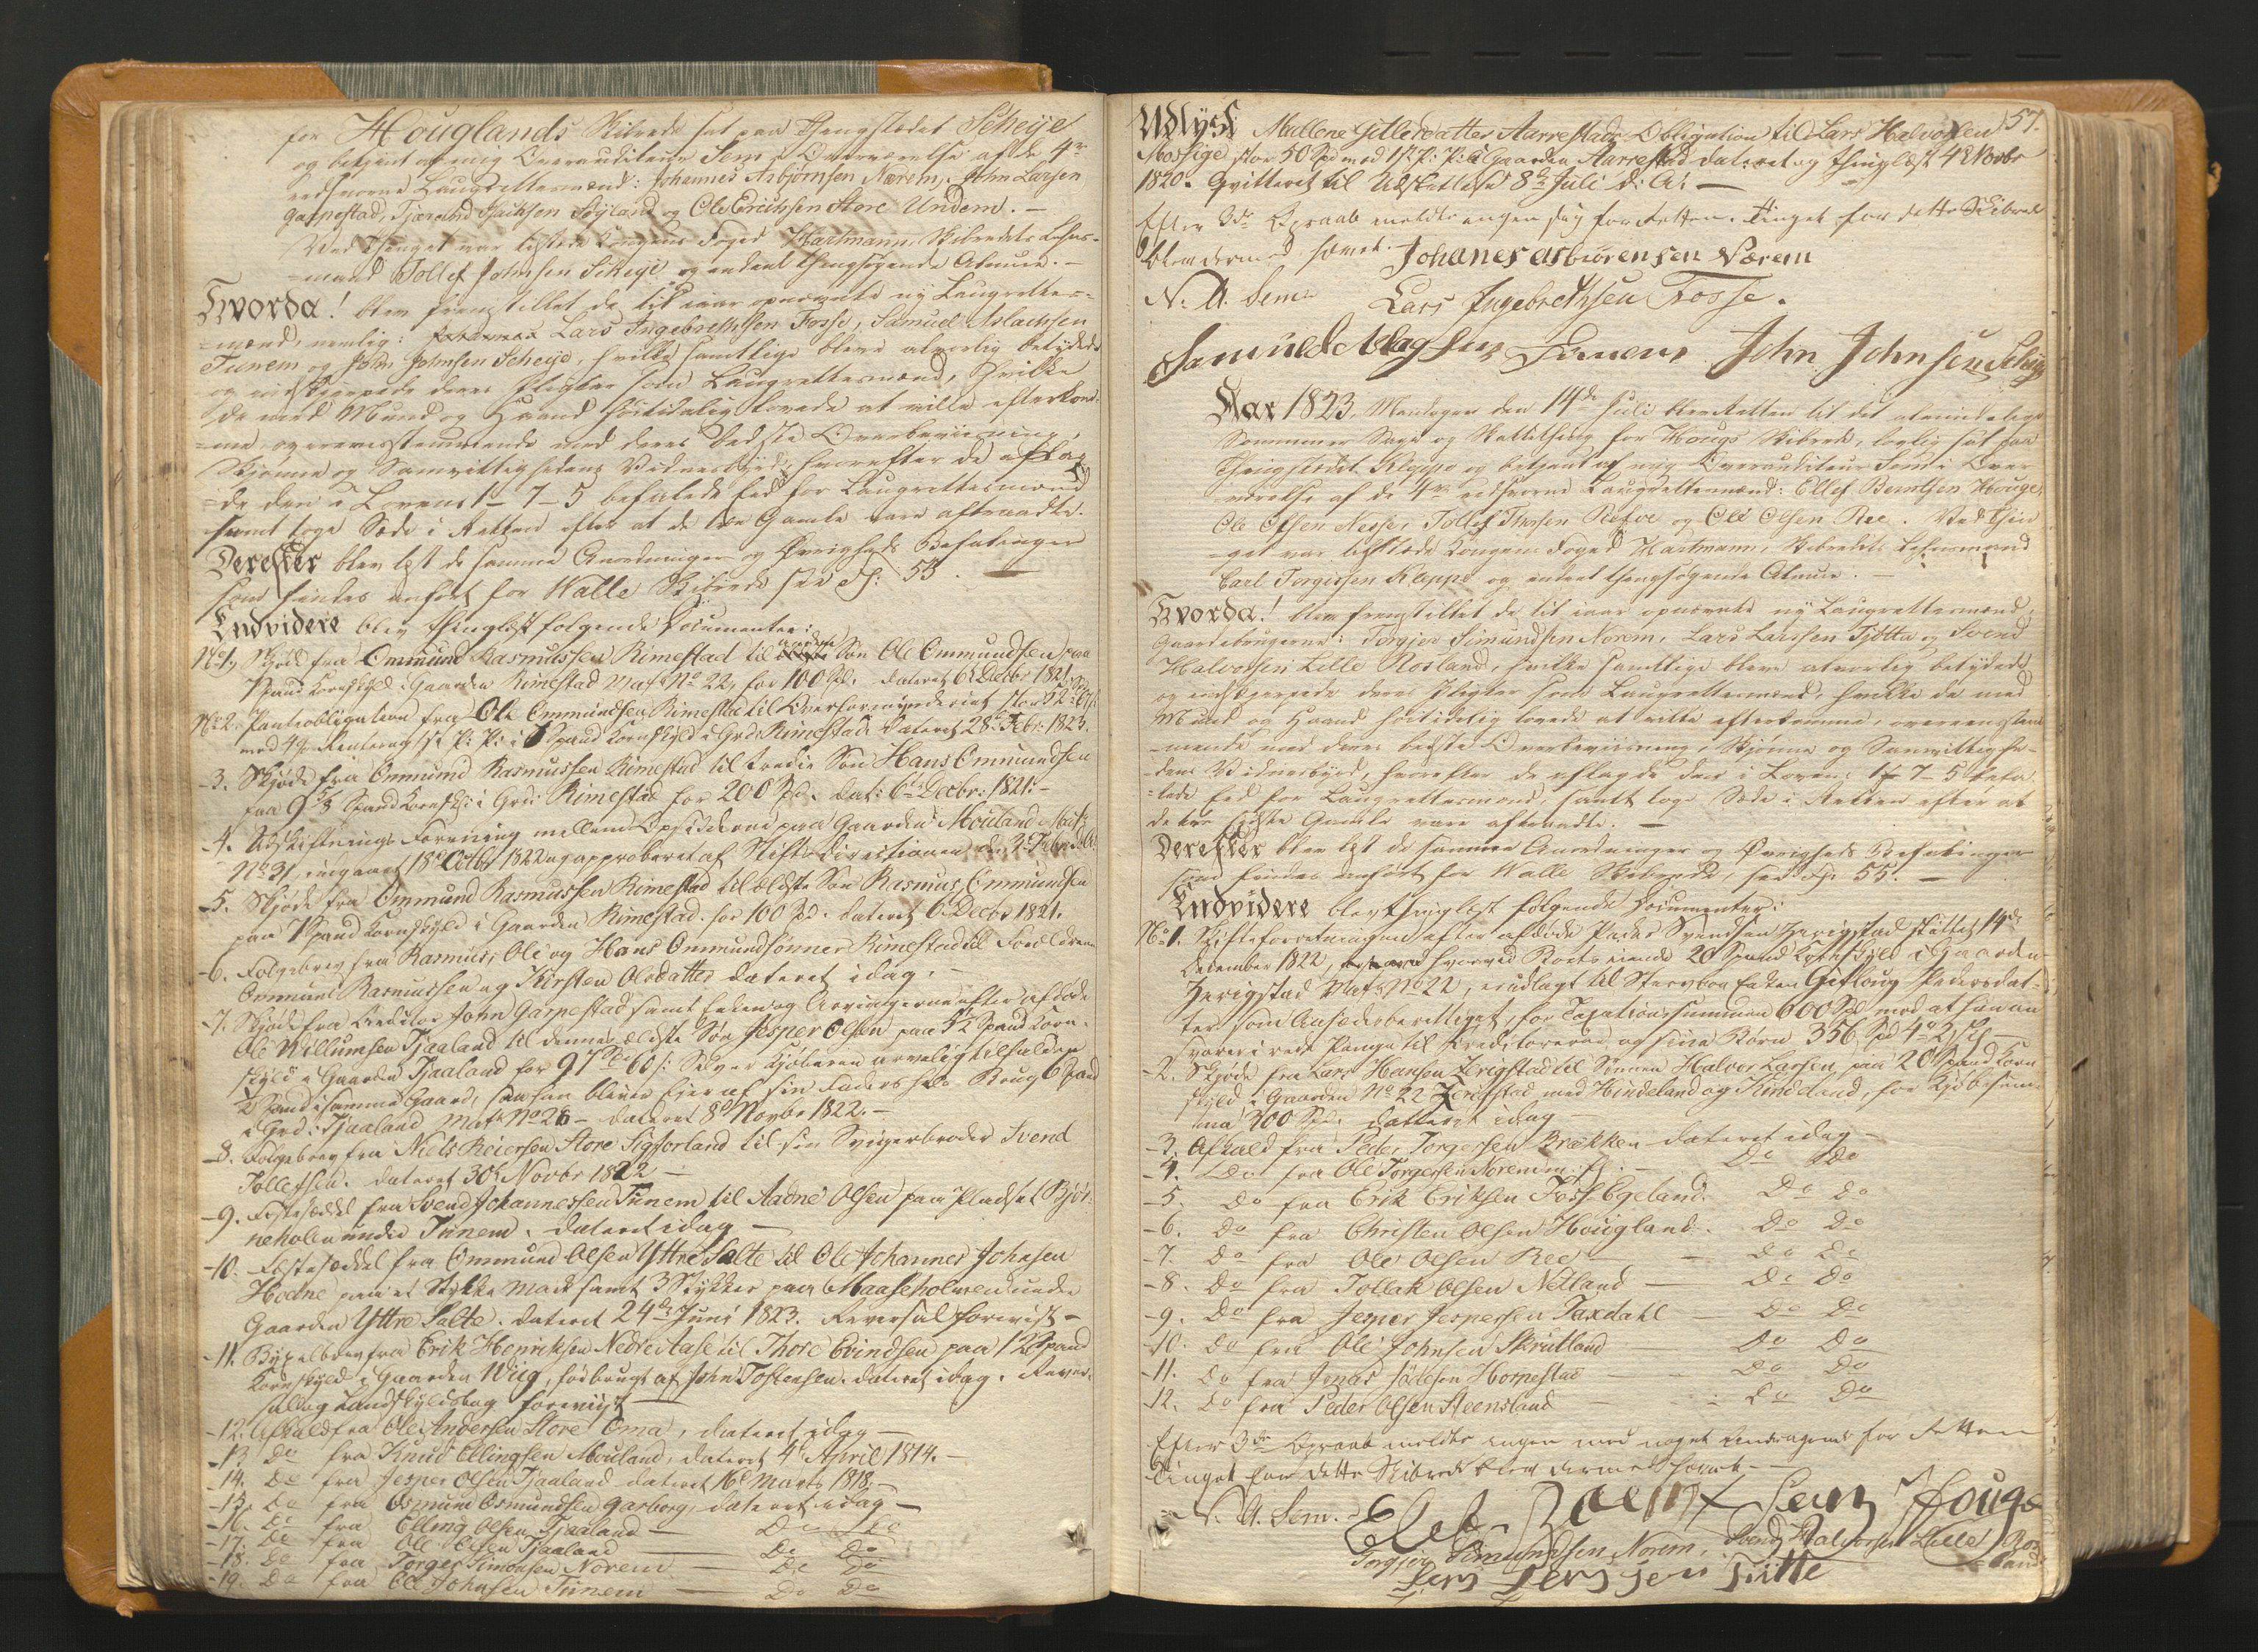 for Houglands Skibrede sat paa Thingstædet Scheije
og betjent af mig Overauditeur Sem i Overværelse af de 4re
eedsvorne Laugrettesmænd: Johannes Asbjørnsen Nærem, John Larsen
Garpestad, Tjærand Isachsen Søyland og Ole Erichsen Store Undem. —
Ved Thinget var tilstæde Kongens Foged Hartmann, Skibredets Lehns-
mand Tollef Johnsen Scheije og endeel thingsøgende Almue. —
Hvorda! blev fremstillet de til iaar opnævnte ny Laugrettes-
mænd, nemlig: Lars Ingebrethsen Fosse, Samuel Aslachsen
Tunem og John Johnsen Scheije, hvilke samtlige bleve alvorlig betydede
og indskjerpede deres Pligter som Laugrettesmænd, hvilke
de med Mund og Haand høitidelig lovede at ville efterkom-
me overeensstemmende med deres bedste Overbeviisning,
Skjønne og Samvittighedens Vidnesbyrd, hvorefter de aflag-
de den i Lovens 1-7-5 befalede Eed for Laugrettesmænd
samt toge Sæde i Retten efter at de tre Gamle vare aftraadte.
Derefter blev læst de samme Anordninger og Øvrigheds Befalinger
som findes anført for Walle Skibrede see F: 55. —
Endvidere blev thinglæst følgende Documenter:
No 1, Skjøde fra Ommund Rasmussen Rimestad til Søn Ole Ommundsen paa
Spand Kornskyld i Gaarden Rimestad Mat: No 22, for 100 Spd. dateret 6te Decbr 1821.
No 2. Pantobligation fra Ole Ommundsen Rimestad til Overformynderiet stor
med 4 pc Renter og 1ste P: P: i 1 Spand Kornskyld i Grd: Rimestad dateret 28de Febr: 1823.
-3. Skjøde fra Ommund Rasmussen Rimestad til tredie Søn Hans Ommundsen
paa 9 5/8 Spand Kornsk: i Grd: Rimestad for 200 Spd. dat: 6te Decbr: 1821. —
-4. Udskiftnings Forening mellem Opsidderne paa Gaarden Mouland Mat:
No 31, indgaaet 18de Octbr 1822 og approberet af Stiftsdirectionen
-5. Skjøde fra Ommund Rasmussen Rimestad til ældste Søn Rasmus Ommundsen
paa 1 Spand Kornskyld i Gaarden Rimestad for 100 Spd. dateret 6 Decbr 1821.
-6. Følgebrev fra Rasmus, Ole og Hans Ommundsønner Rimestad til Forældrene
Ommund Rasmussen og Kirsten Olsdatter dateret idag. —
-7. Skjøde fra Creditor John Garpestad samt Enken og Arvingerne efter afdøde
Ole Willumsen Tjaaland til dennes ældste Søn Jesper Olsen paa 5½ Spand Korn-
skyld i Gaarden Tjaaland for 97 Spd 60 s: Sølver Kjøberen arvelig tilfalden
2 Spand i samme Gaard, saa han bliver Ejer af sin Faders hele Brug 6 Spand
i Grd: Tjaaland Mat: No 26 - dateret 8de Novbr 1822. —
-8. Følgebrev fra Niels Reiersen Store Sigforland til sin Svigerbroder Svend
Tollefsen. dateret 30te Novbr 1822 —
-9. Festesæddel fra Svend Johannessen Tunem til Aadne Olsen paa Pladset Bjør-
neholen under Tunem. dateret idag —
-10. Festesæddel fra Ommund Olsen Yttre Salte til Ole Johannes Johnsen
Hodne paa et Stykke Mark samt 3 Stykker paa Maaseholmen under
Gaarden Yttre Salte. dateret 24de Juni 1823. Reversal foreviist —
-11. Bÿxelbrev fra Erik Henriksen Nedre Aase til Thore Evindsen paa 12 Spand
Kornskyld i Gaarden Wiig, før brugt af John Tostensen. dateret idag. Rever-
sal og Landskyldsbog foreviist —
-12. Afkald fra Ole Andersen Store Oma, dateret idag —
-13. Do fra Knud Ellingsen Mouland, dateret 4de April 1814. —
-14. Do fra Jesper Olsen Tjaaland dateret 16de Marts 1818. —
-15. Do fra Osmund Osmundsen Garborg, dateret idag —
-16. Do fra Elling Olsen Tjaaland — Do Do
-17. Do fra Ole Olsen Tjaaland — Do Do
-18. Do fra Torger Simonsen Norem — Do Do
-19. Do fra Ole Johnsen Tunem — Do Do
57.
Udlyst Mallene Gitlesdatter Aarrestads Obligation til Lars Halvorsen
Mossige stor 50 Spd mod 1ste P: P: i Gaarden Aarrestad dateret og thinglæst 4de Novbr
1820. Qvitteret til Udslettelse 8de Juli d: A: —
Efter 3de Opraab meldte ingen sig for Retten. Tinget for dette Skibrede
blev dermed hævet. Johanes asbiørensen Nærem
N. A. Sem Lars Ingebrethsen Fosse.
Samuel Aslagsen Tunem John Johnsen Scheije
Aar 1823. Mandagen den 14de Juli blev Retten til det almindelige
Sommer Sage og Skattething for Hougs Skibrede, lovlig sat paa
Thingstedet Kleppe og betjent af mig Overauditeur Sem i Over-
værelse af de 4re eedsvorne Laugrettesmænd: Ellef Berntsen Houge,
Ole Olsen Nesse, Tollef Thorsen Refve og Ole Olsen Ree. Ved Thin-
get var tilstæde Kongens Foged Hartmann, Skibredets Lehnsmand
Carl Torgersen Kleppe og endeel thingsøgende Almue. —
Hvorda! blev fremstillet de til iaar opnævnte ny Laugrettesmænd,
Gaardebrugerne: Torgjer Simundsen Norem, Lars Larssen Tjøtta og Svend
Halvorsen Lille Rosland, hvilke samtlige bleve alvorlig betydede
og indskjerpede deres Pligter som Laugrettesmænd, hvilke de med
Mund og Haand høitidelig lovede at ville efterkomme, overeensstem-
mende med deres bedste Overbeviisning, Skjønne og Samvittighe-
dens Vidnesbyrd, hvorefter de aflagde den i Lovens 1-7-5 befa-
lede Eed for Laugrettesmænd, samt toge Sæde i Retten efter at
de tre sidste Gamle vare aftraadte. —
Derefter blev læst de samme Anordninger og Øvrigheds Befalinger
som findes anført for Walle Skibrede, see F: 55. —
Endvidere blev thinglæst følgende Documenter:
No 1. Skifteforretningen efter afdøde Peder Svendsen Herigstad sluttet 14de
December 1822, hvorved Boets eiende 20 Spand Kornskyld i Gaarden
Herigstad Mat: No 22, er udlagt til Stervboe Enken Gitlaug Pedersdat-
ter som Aasædesberettiget, for Taxationssummen 600 Spd mod at hun an-
svarer i rede Penge til Creditorerne og sine Børn 356 Spd
-2. Skjøde fra Lars Hansen Herigstad til Sønnen Halvor Larsen paa 20 Spand Korn-
skyld i Gaarden No 22 Herigstad med Hindeland og Kindeland, for Kjøbesum-
ma 300 Spd. datteret idag —
-3. Afkald fra Peder Torgersen Brækken dateret idag —
-4. Do fra Ole Torgersen Norem — Do Do
-5. Do fra Erik Eriksen Foss Egeland. Do Do
-6. Do fra Christen Olsen Hougland. Do Do
-7. Do fra Ole Olsen Ree — Do Do
-8. Do fra Tollak Olsen Netland — Do Do
-9. Do fra Jesper Jespersen Taxdahl — Do Do
-10. Do fra Ole Johnsen Skrutland — Do Do
-11. Do fra Jonas Hornestad — Do Do
-12. Do fra Peder Olsen Steensland — Do Do
Efter 3de Opraab meldte ingen med noget andragende for Retten
Tinget for dette Skibrede blev dermed hævet —
N. A. Sem. Elef Baentsen Houge
Torgjer Simundsen Norem, Svend Halvorsen Lille Ros-
land
Lars Larssen Tiøtte